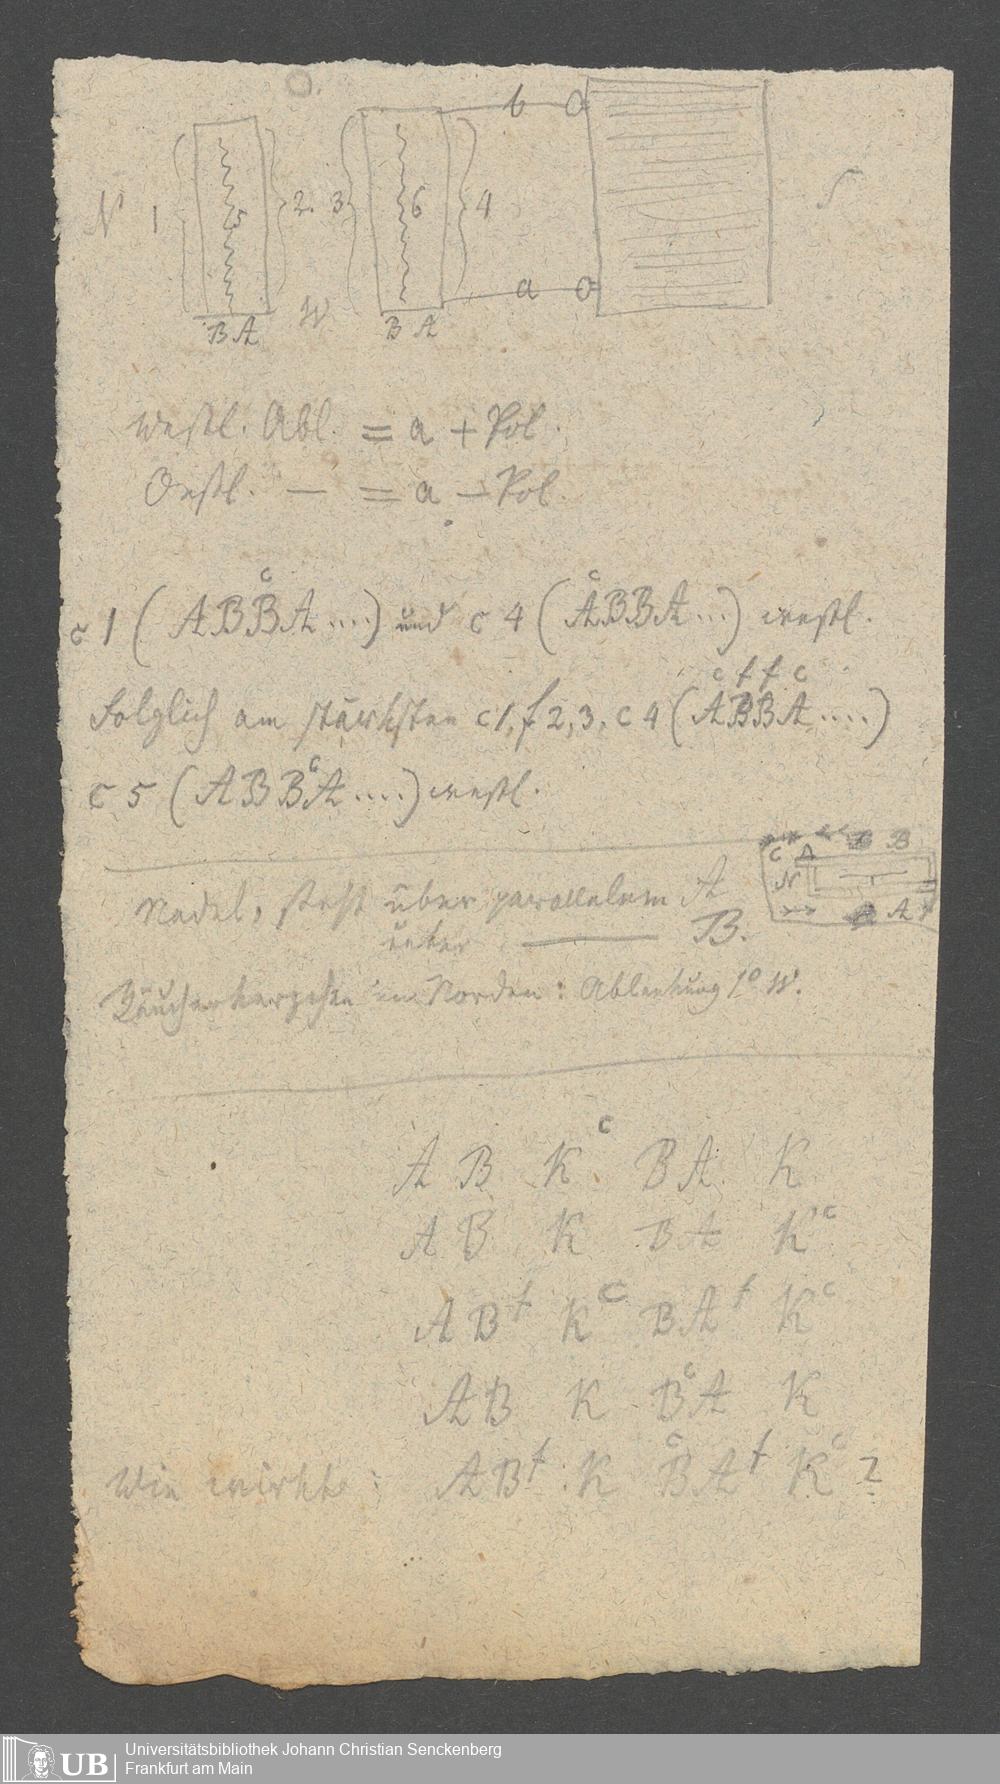 O.
b O
N 1 5 2. 3 6 4 S
a O
B A W B A
westl. Abl. = a + Pol.
Oestl. — = a — Pol.
c
c 1 ( A B B A .... ) und c 4 ( A B B A ... ) westl.
c f f c
Folglich am stärksten c 1, f 2, 3, c 4 ( A B B A .... )
c 5 ( A B B c A .... ) westl.
C A B B
Nadel, steht über parallelem A
N
unter ——— B.
A A
Räucherkerzchen im Norden: Ablenkung 1° W.
A B K c B A K
A B K B A K c
A B f K c B A f K c
A B K B c A K
Wie wirkt: A B f K B c A f K c ?
UB Universitätsbibliothek Johann Christian Senckenberg
Frankfurt am Main